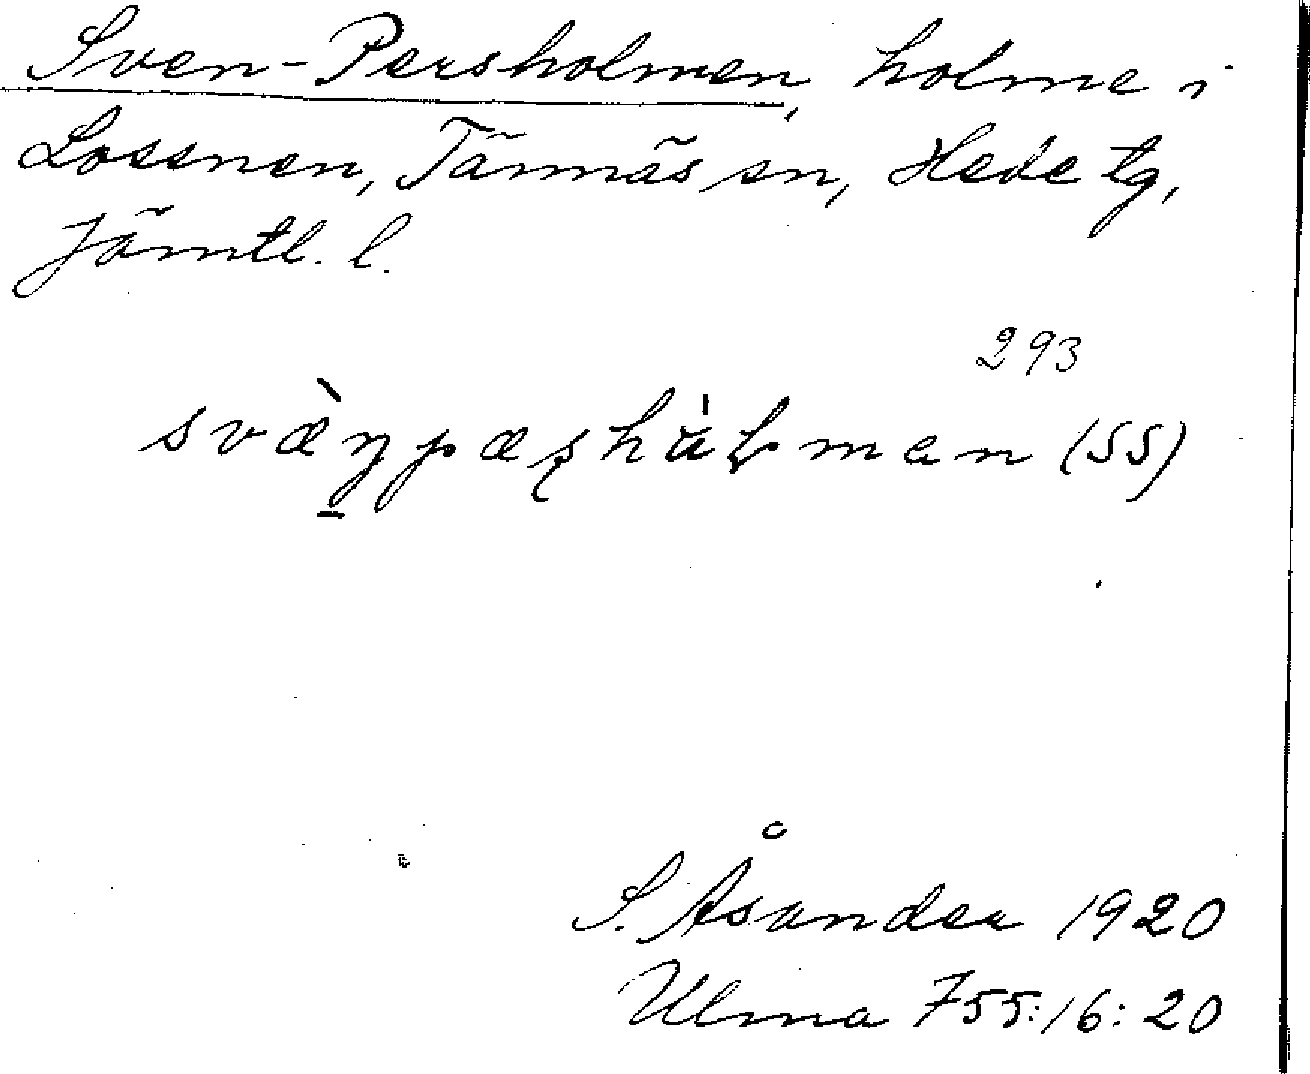 Sven-Persholmen, holme i
Lossnen, Tännäs sn, Hede tg,
Jämtl. l.
293
svæ̀ŋpæʂhàɽmen (SS)
S. Åsander 1920
Ulma 755:16:20